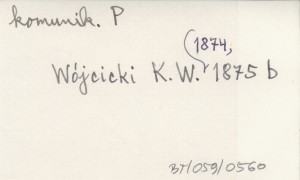 komunik. P
1874,
Wójcicki K.W. 1875 b
BT/059/0560